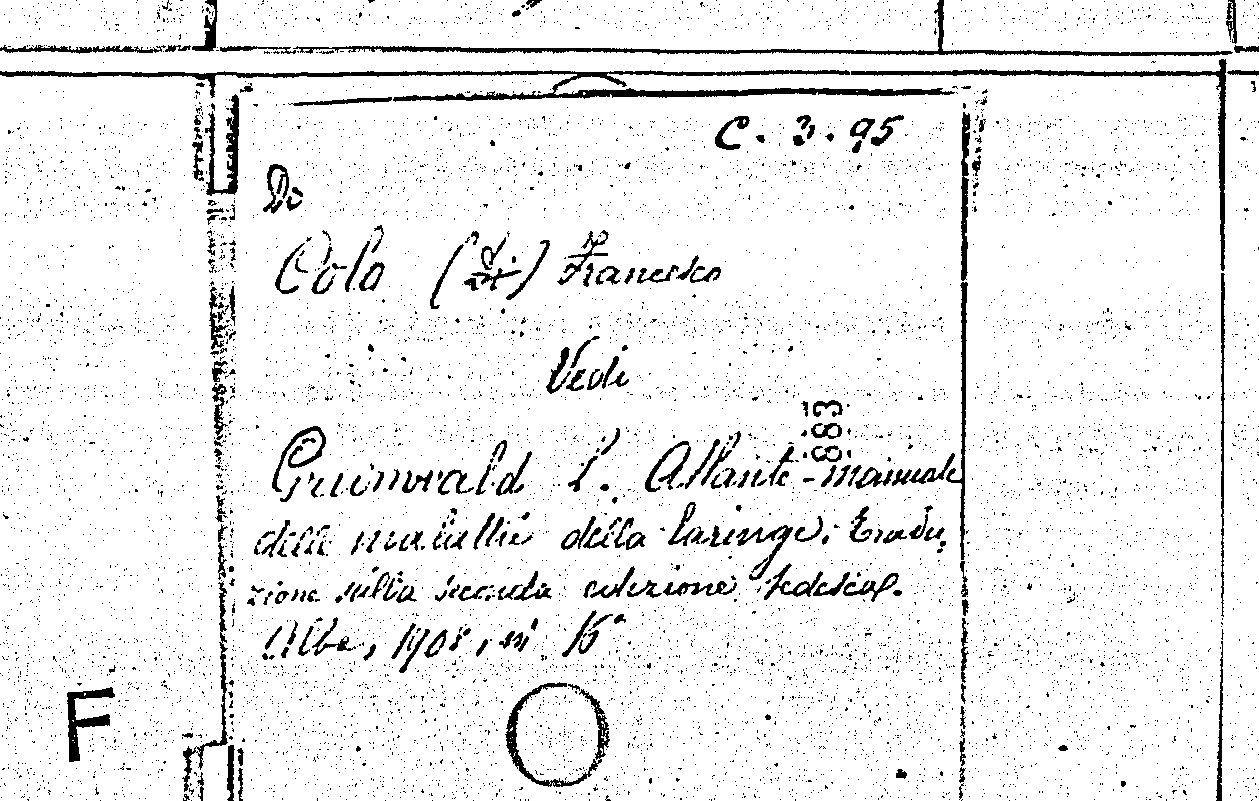 C. 3. 95
Di
Cola (Di) Francesco
Vedi
883
Grünwald L. Atlante-manuale
delle malattie della laringe. Tradu,
zione sulla seconda edizione tedesca.
Alba, 1908, in 16°
F